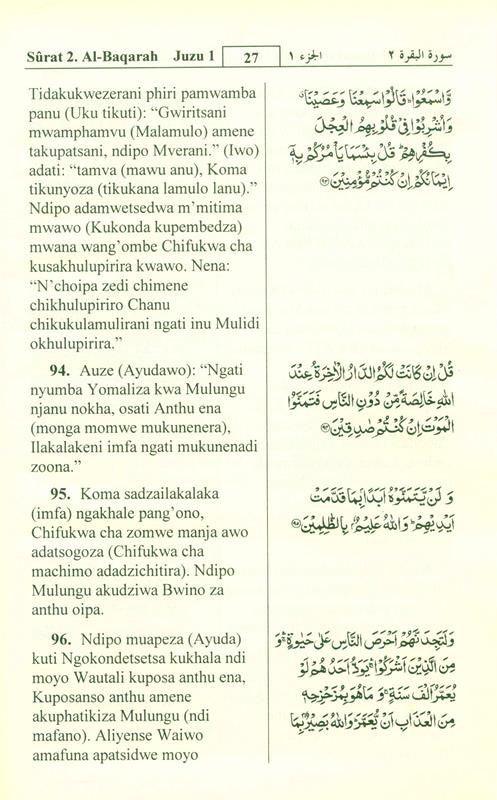 Sûrat 2. Al-Baqarah Juzu 1 27 الجزء ١ سورة البقرة ٢
Tidakukwezerani phiri pamwamba
panu (Uku tikuti): “Gwiritsani
mwamphamvu (Malamulo) amene
takupatsani, ndipo Mverani.” (Iwo)
adati: “tamva (mawu anu), Koma
tikunyoza (tikukana lamulo lanu).”
Ndipo adamwetsedwa m’mitima
mwawo (Kukonda kupembedza)
mwana wang’ombe Chifukwa cha
kusakhulupirira kwawo. Nena:
“N’choipa zedi chimene
chikhulupiriro Chanu
chikukulamulirani ngati inu Mulidi
okhulupirira.”
94. Auze (Ayudawo): “Ngati
nyumba Yomaliza kwa Mulungu
njanu nokha, osati Anthu ena
(monga momwe mukunenera),
Ilakalakeni imfa ngati mukunenadi
zoona.”
95. Koma sadzailakalaka
(imfa) ngakhale pang’ono,
Chifukwa cha zomwe manja awo
adatsogoza (Chifukwa cha
machimo adadzichitira). Ndipo
Mulungu akudziwa Bwino za
anthu oipa.
96. Ndipo muapeza (Ayuda)
kuti Ngokondetsetsa kukhala ndi
moyo Wautali kuposa anthu ena,
Kuposanso anthu amene
akuphatikiza Mulungu (ndi
mafano). Aliyense Waiwo
amafuna apatsidwe moyo
وَّاسْمَعُوْا ۗ قَالُوْا سَمِعْنَا وَعَصَيْنَا
وَاُشْرِبُوْا فِيْ قُلُوْبِهِمُ الْعِجْلَ
بِكُفْرِهِمْ ۗ قُلْ بِئْسَمَا يَأْمُرُكُمْ بِهٖٓ
اِيْمَانُكُمْ اِنْ كُنْتُمْ مُّؤْمِنِيْنَ ﴿٩٣﴾
قُلْ اِنْ كَانَتْ لَكُمُ الدَّارُ الْاٰخِرَةُ عِنْدَ
اللهِ خَالِصَةً مِّنْ دُوْنِ النَّاسِ فَتَمَنَّوُا
الْمَوْتَ اِنْ كُنْتُمْ صٰدِقِيْنَ ﴿٩٤﴾
وَلَنْ يَّتَمَنَّوْهُ اَبَدًا بِمَا قَدَّمَتْ
اَيْدِيْهِمْ ۗ وَاللهُ عَلِيْمٌۢ بِالظّٰلِمِيْنَ ﴿٩٥﴾
وَلَتَجِدَنَّهُمْ اَحْرَصَ النَّاسِ عَلٰى حَيٰوةٍ ۚ وَ
مِنَ الَّذِيْنَ اَشْرَكُوْا ۚ يَوَدُّ اَحَدُهُمْ لَوْ
يُعَمَّرُ اَلْفَ سَنَةٍ ۚ وَمَا هُوَ بِمُزَحْزِحِهٖ
مِنَ الْعَذَابِ اَنْ يُّعَمَّرَ ۗ وَاللهُ بَصِيْرٌۢ بِمَا